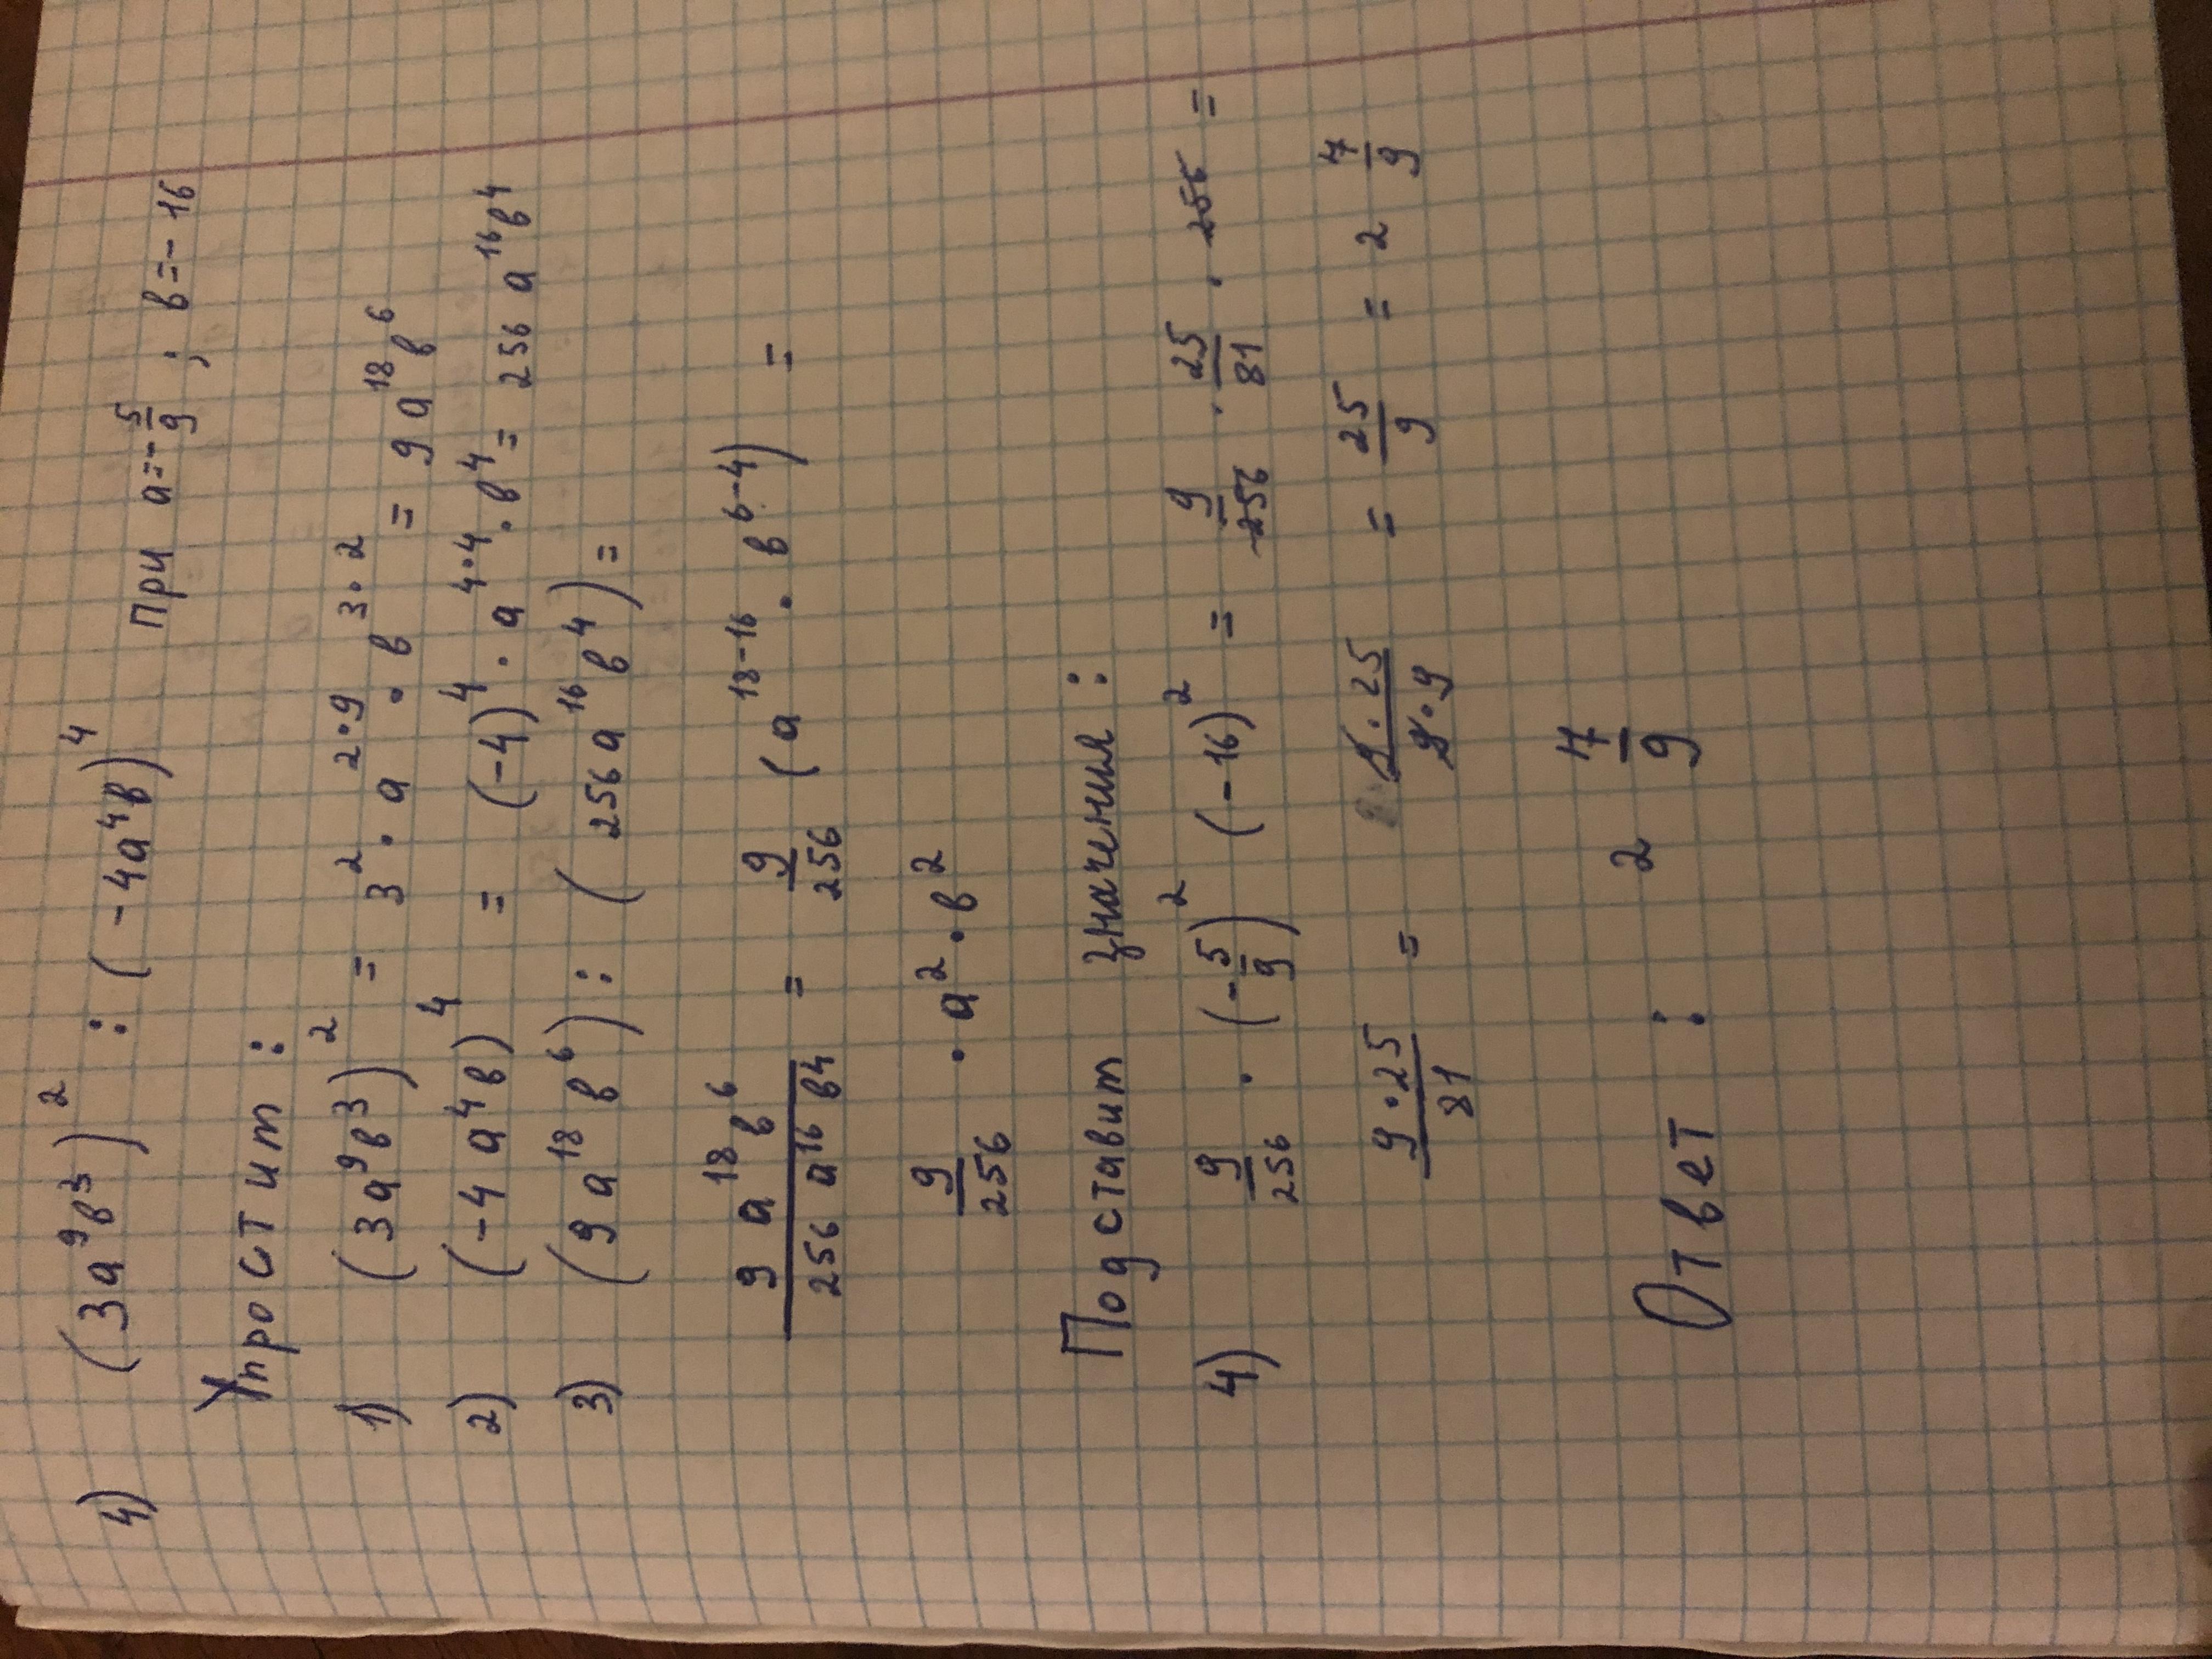 4) (3a⁹в³)² : (-4a⁴в)⁴
При a=-5/9 ; в=-16
Упростим :
1) (3a⁹в³)² = 3²·a²·⁹·в³·² = 9a¹⁸в⁶
2) (-4a⁴в)⁴ = (-4)⁴·a⁴·⁴·в⁴= 256a¹⁶в⁴
3) (9a¹⁸в⁶) : (256a¹⁶в⁴)=
9a¹⁸в⁶/256a¹⁶в4 = 9/256 (a¹⁸⁻¹⁶·в⁶⁻⁴) =
9/256 · a²·в²
Подставит значения :
4) 9/256 · (-5/9)² (-16)² = 9/256 · 25/81 · 256 =
9·25/81 = 9·25/9·9 = 25/9 = 2 7/9
Ответ : 2 7/9